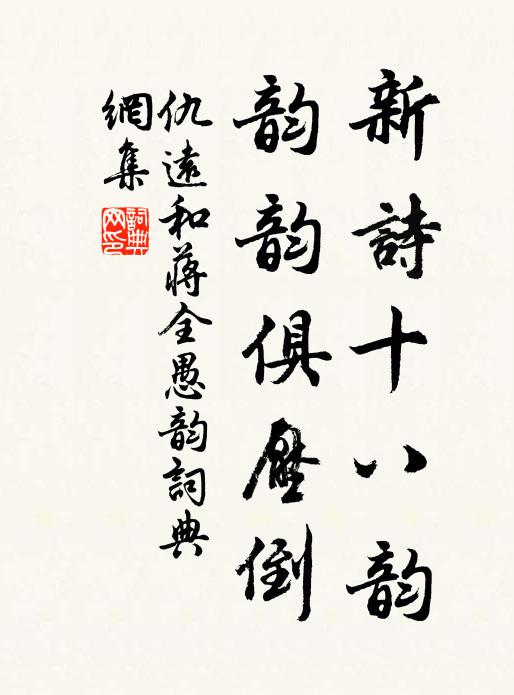 新詩十八韵
韵韵俱壓倒
仇遠和蔣全愚韵詞典
網集
詞典網印